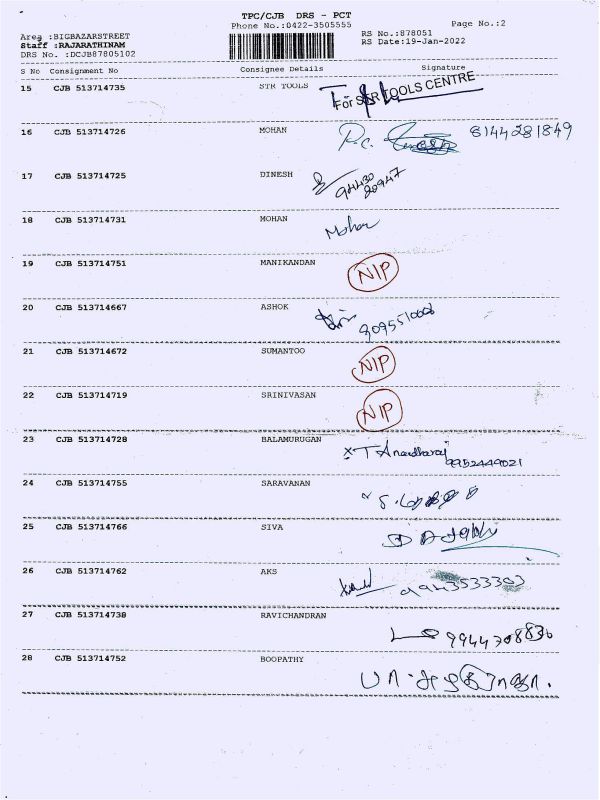 TPC/CJB DRS - PCT
Phone No.:0422-3505555 Page No.:2
Area :BIGBAZARSTREET RS No.:878051
Staff :RAJARATHINAM RS Date:19-Jan-2022
DRS No. :DCJB87805102
S No Consignment No Consignee Details Signature
15 CJB 513714735 STR TOOLS For STR TOOLS CENTRE
16 CJB 513714726 MOHAN 8144281849
17 CJB 513714725 DINESH 94430
20947
18 CJB 513714731 MOHAN Mohan
19 CJB 513714751 MANIKANDAN NIP
20 CJB 513714667 ASHOK
21 CJB 513714672 SUMANTOO NIP
22 CJB 513714719 SRINIVASAN NIP
23 CJB 513714728 BALAMURUGAN x T Anandharaj
9952449021
24 CJB 513714755 SARAVANAN
25 CJB 513714766 SIVA
26 CJB 513714762 AKS
27 CJB 513714738 RAVICHANDRAN
28 CJB 513714752 BOOPATHY